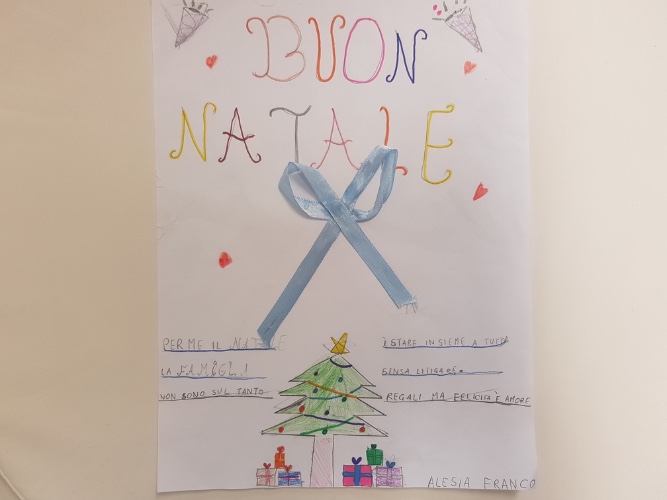 BUON
NATALE
PER ME IL NATALE È STARE INSIEME A TUTTA
LA FAMIGLIA SENZA LITIGARE.
NON SONO SUL TANTO REGALI MA FELICITÀ E AMORE
ALESIA FRANCO